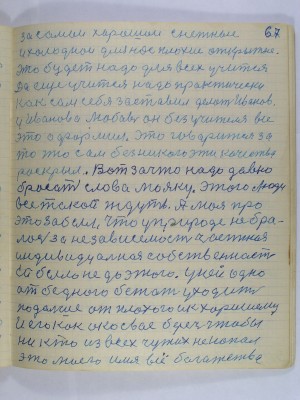 67
за самым хорошим снежным
и холодной для нас плохие открытие.
Это будет надо для всех учится
да еще учится надо практически
как сам себя заставил делать Иванов.
у Иванова Любовь он без учителя все
это оформил. Это говорится за
то что сам без никого эти качества
раскрыл. Вот за что надо давно
бросать слова маяку. Этого люди
все такое ждут. А мая про
это забыл, что у природе не бра-
лось за независимость частная
индивидуалная собственность
Ей было не до этого. У ней одно
от бедного бежат уходить
подалше от плохого и к хорошему
И его как окосвае берег чтобы
ни кто из всех чужих не попал
это моего имя всё богатства